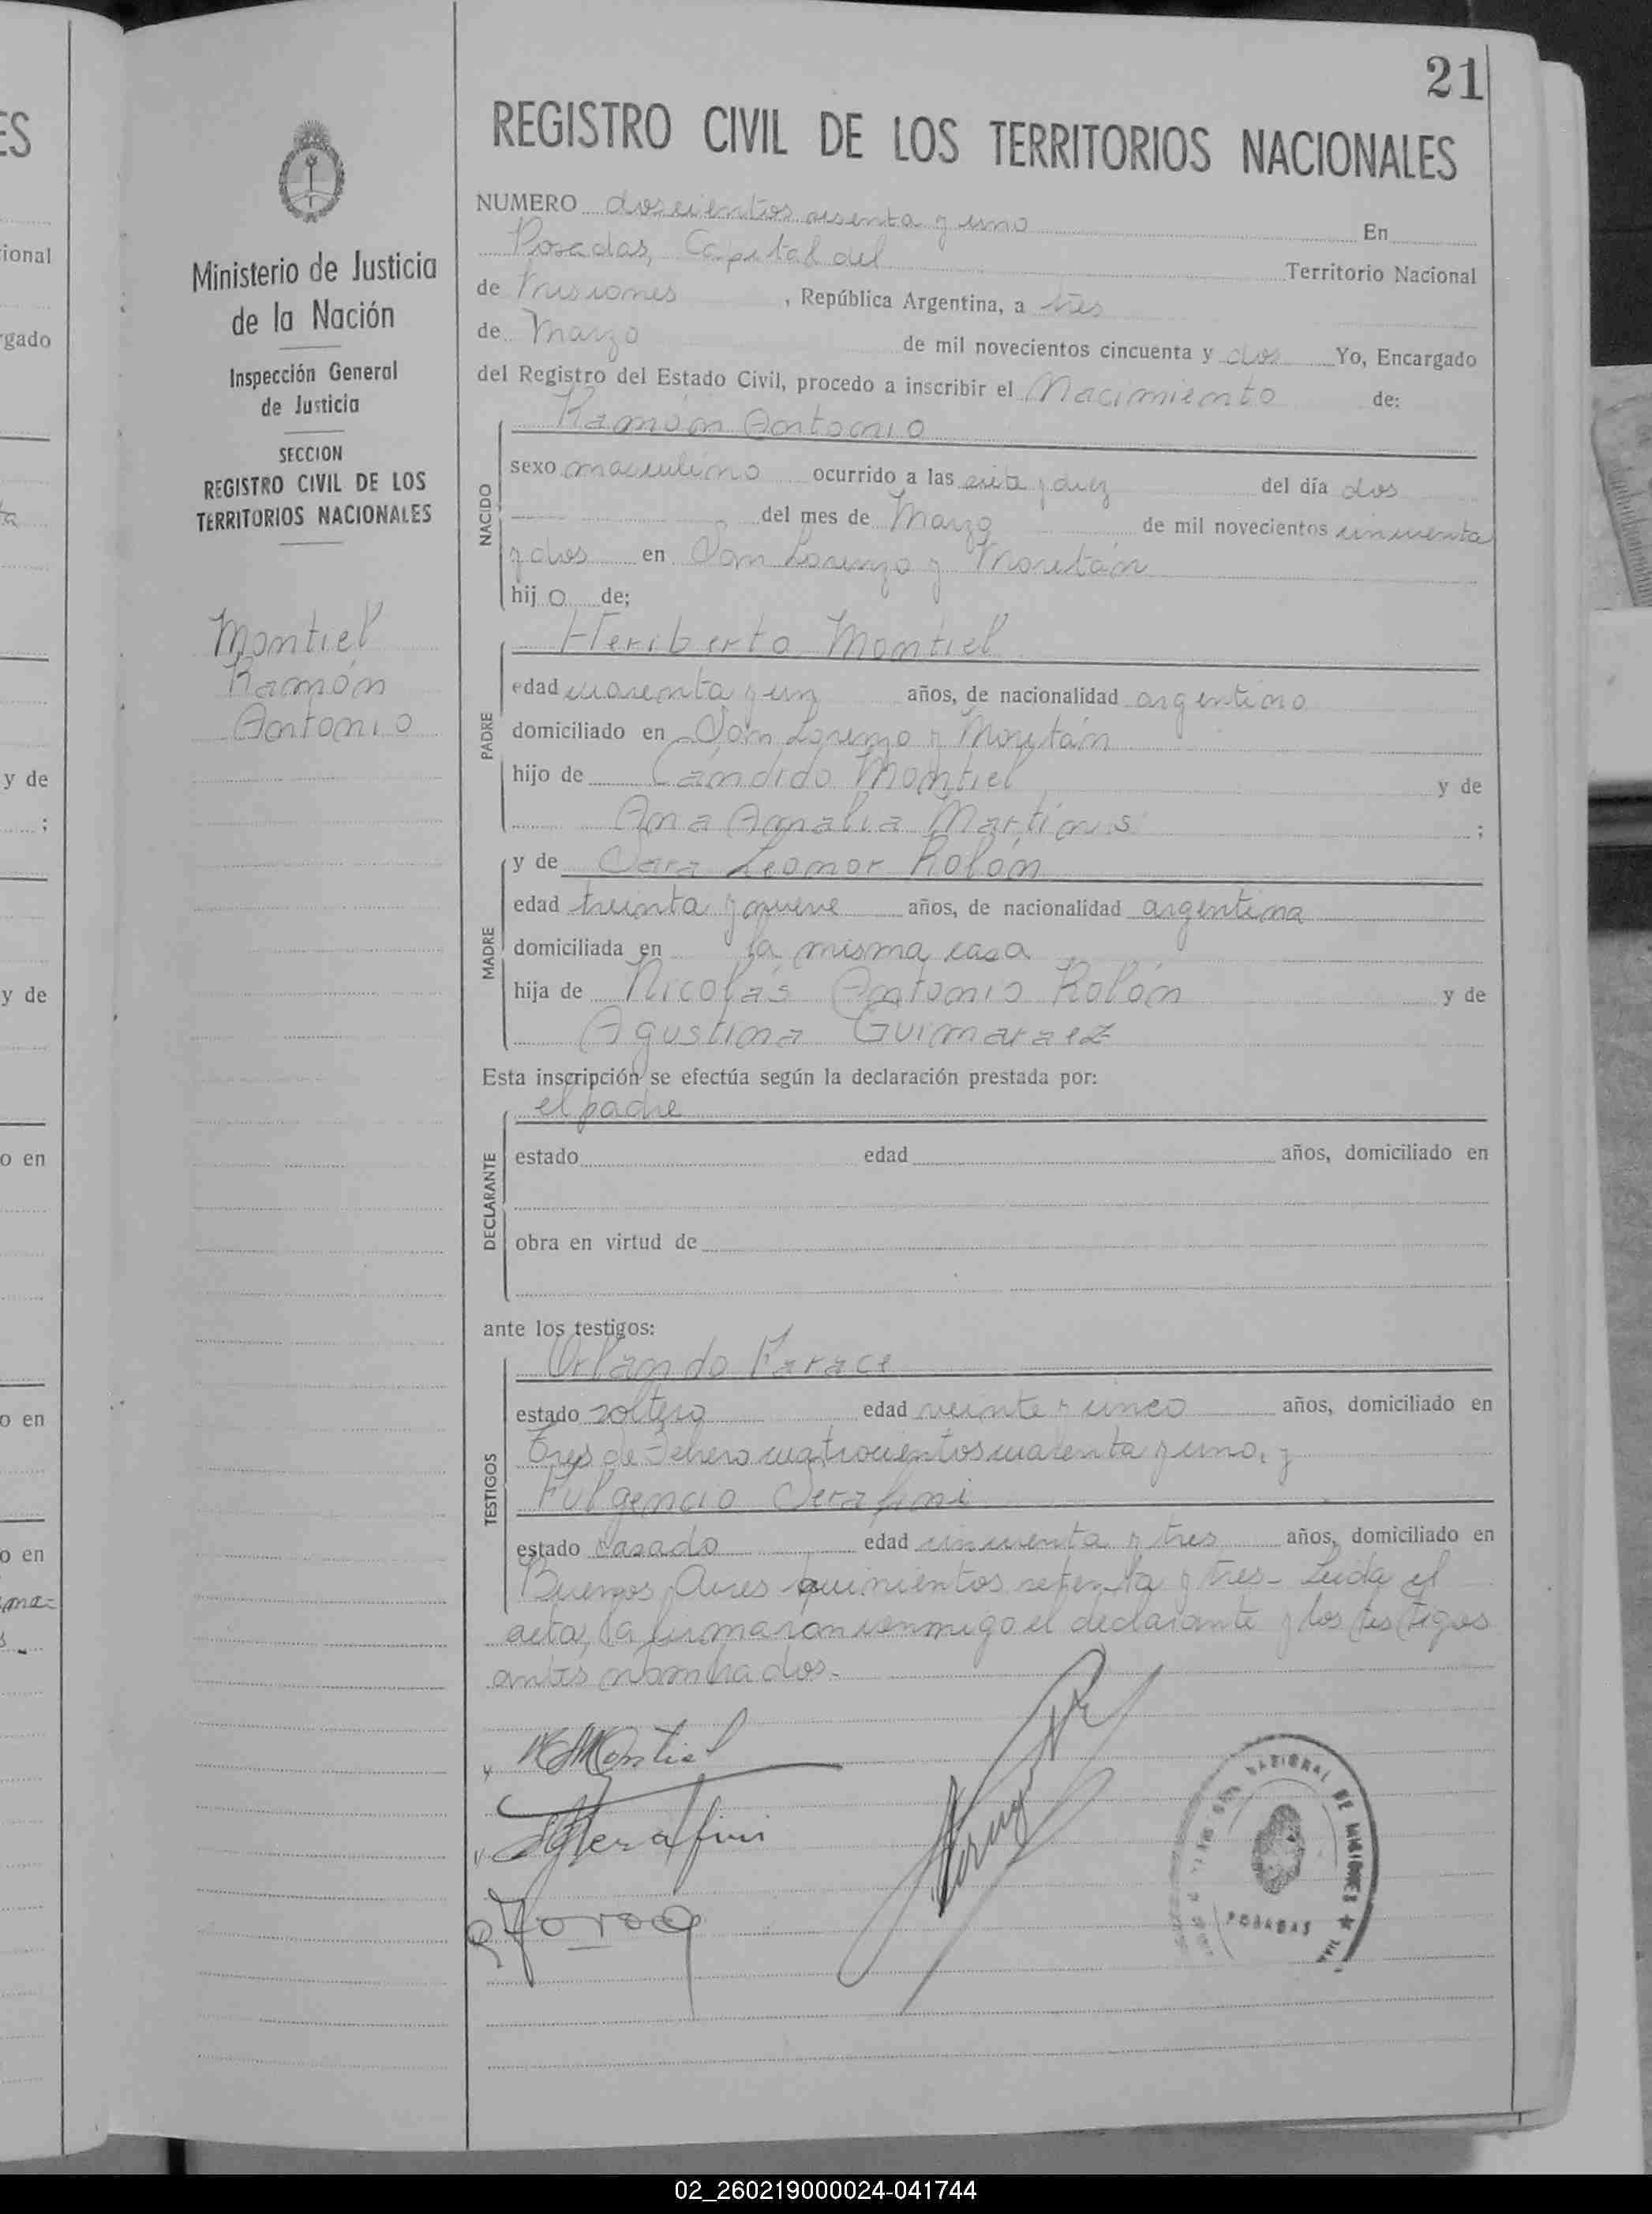 21
REGISTRO CIVIL DE LOS TERRITORIOS NACIONALES
Ministerio de Justicia
de la Nación
Inspección General
de Justicia
SECCION
REGISTRO CIVIL DE LOS
TERRITORIOS NACIONALES
Montiel
Ramón
Antonio
NUMERO doscientos sesenta y uno En
Posadas, Capital del Territorio Nacional
de Misiones, República Argentina, a tres
de Marzo de mil novecientos cincuenta y dos Yo, Encargado
del Registro del Estado Civil, procedo a inscribir el Nacimiento de:
NACIDO
Ramón Antonio
sexo masculino ocurrido a las siete y diez del día dos
del mes de Marzo de mil novecientos cincuenta
y dos en San Lorenzo y Moritán
hijo de;
PADRE
Heriberto Montiel
edad cuarenta y un años, de nacionalidad argentino
domiciliado en San Lorenzo y Moritán
hijo de Cándido Montiel y de
Ana Amalia Martines ;
MADRE
y de Sara Leonor Rolón
edad treinta y nueve años, de nacionalidad argentina
domiciliada en la misma casa
hija de Nicolás Antonio Rolón y de
Agustina Guimaraez
Esta inscripción se efectúa según la declaración prestada por:
DECLARANTE
el padre
estado edad años, domiciliado en
obra en virtud de
ante los testigos:
TESTIGOS
Orlando Farace
estado soltero edad veinte y cinco años, domiciliado en
Tres de Febrero cuatrocientos cuarenta y uno, y
Fulgencio Serafini
estado casado edad cincuenta y tres años, domiciliado en
Buenos Aires quinientos setenta y tres- Leída el
acta, la firmaron conmigo el declarante y los testigos
antes nombrados.-
Montiel
Serafini
NACIONAL DE MISIONES
POSADAS
ES
cional
rgado
y de
;
y de
o en
o en
o en
02_260219000024-041744